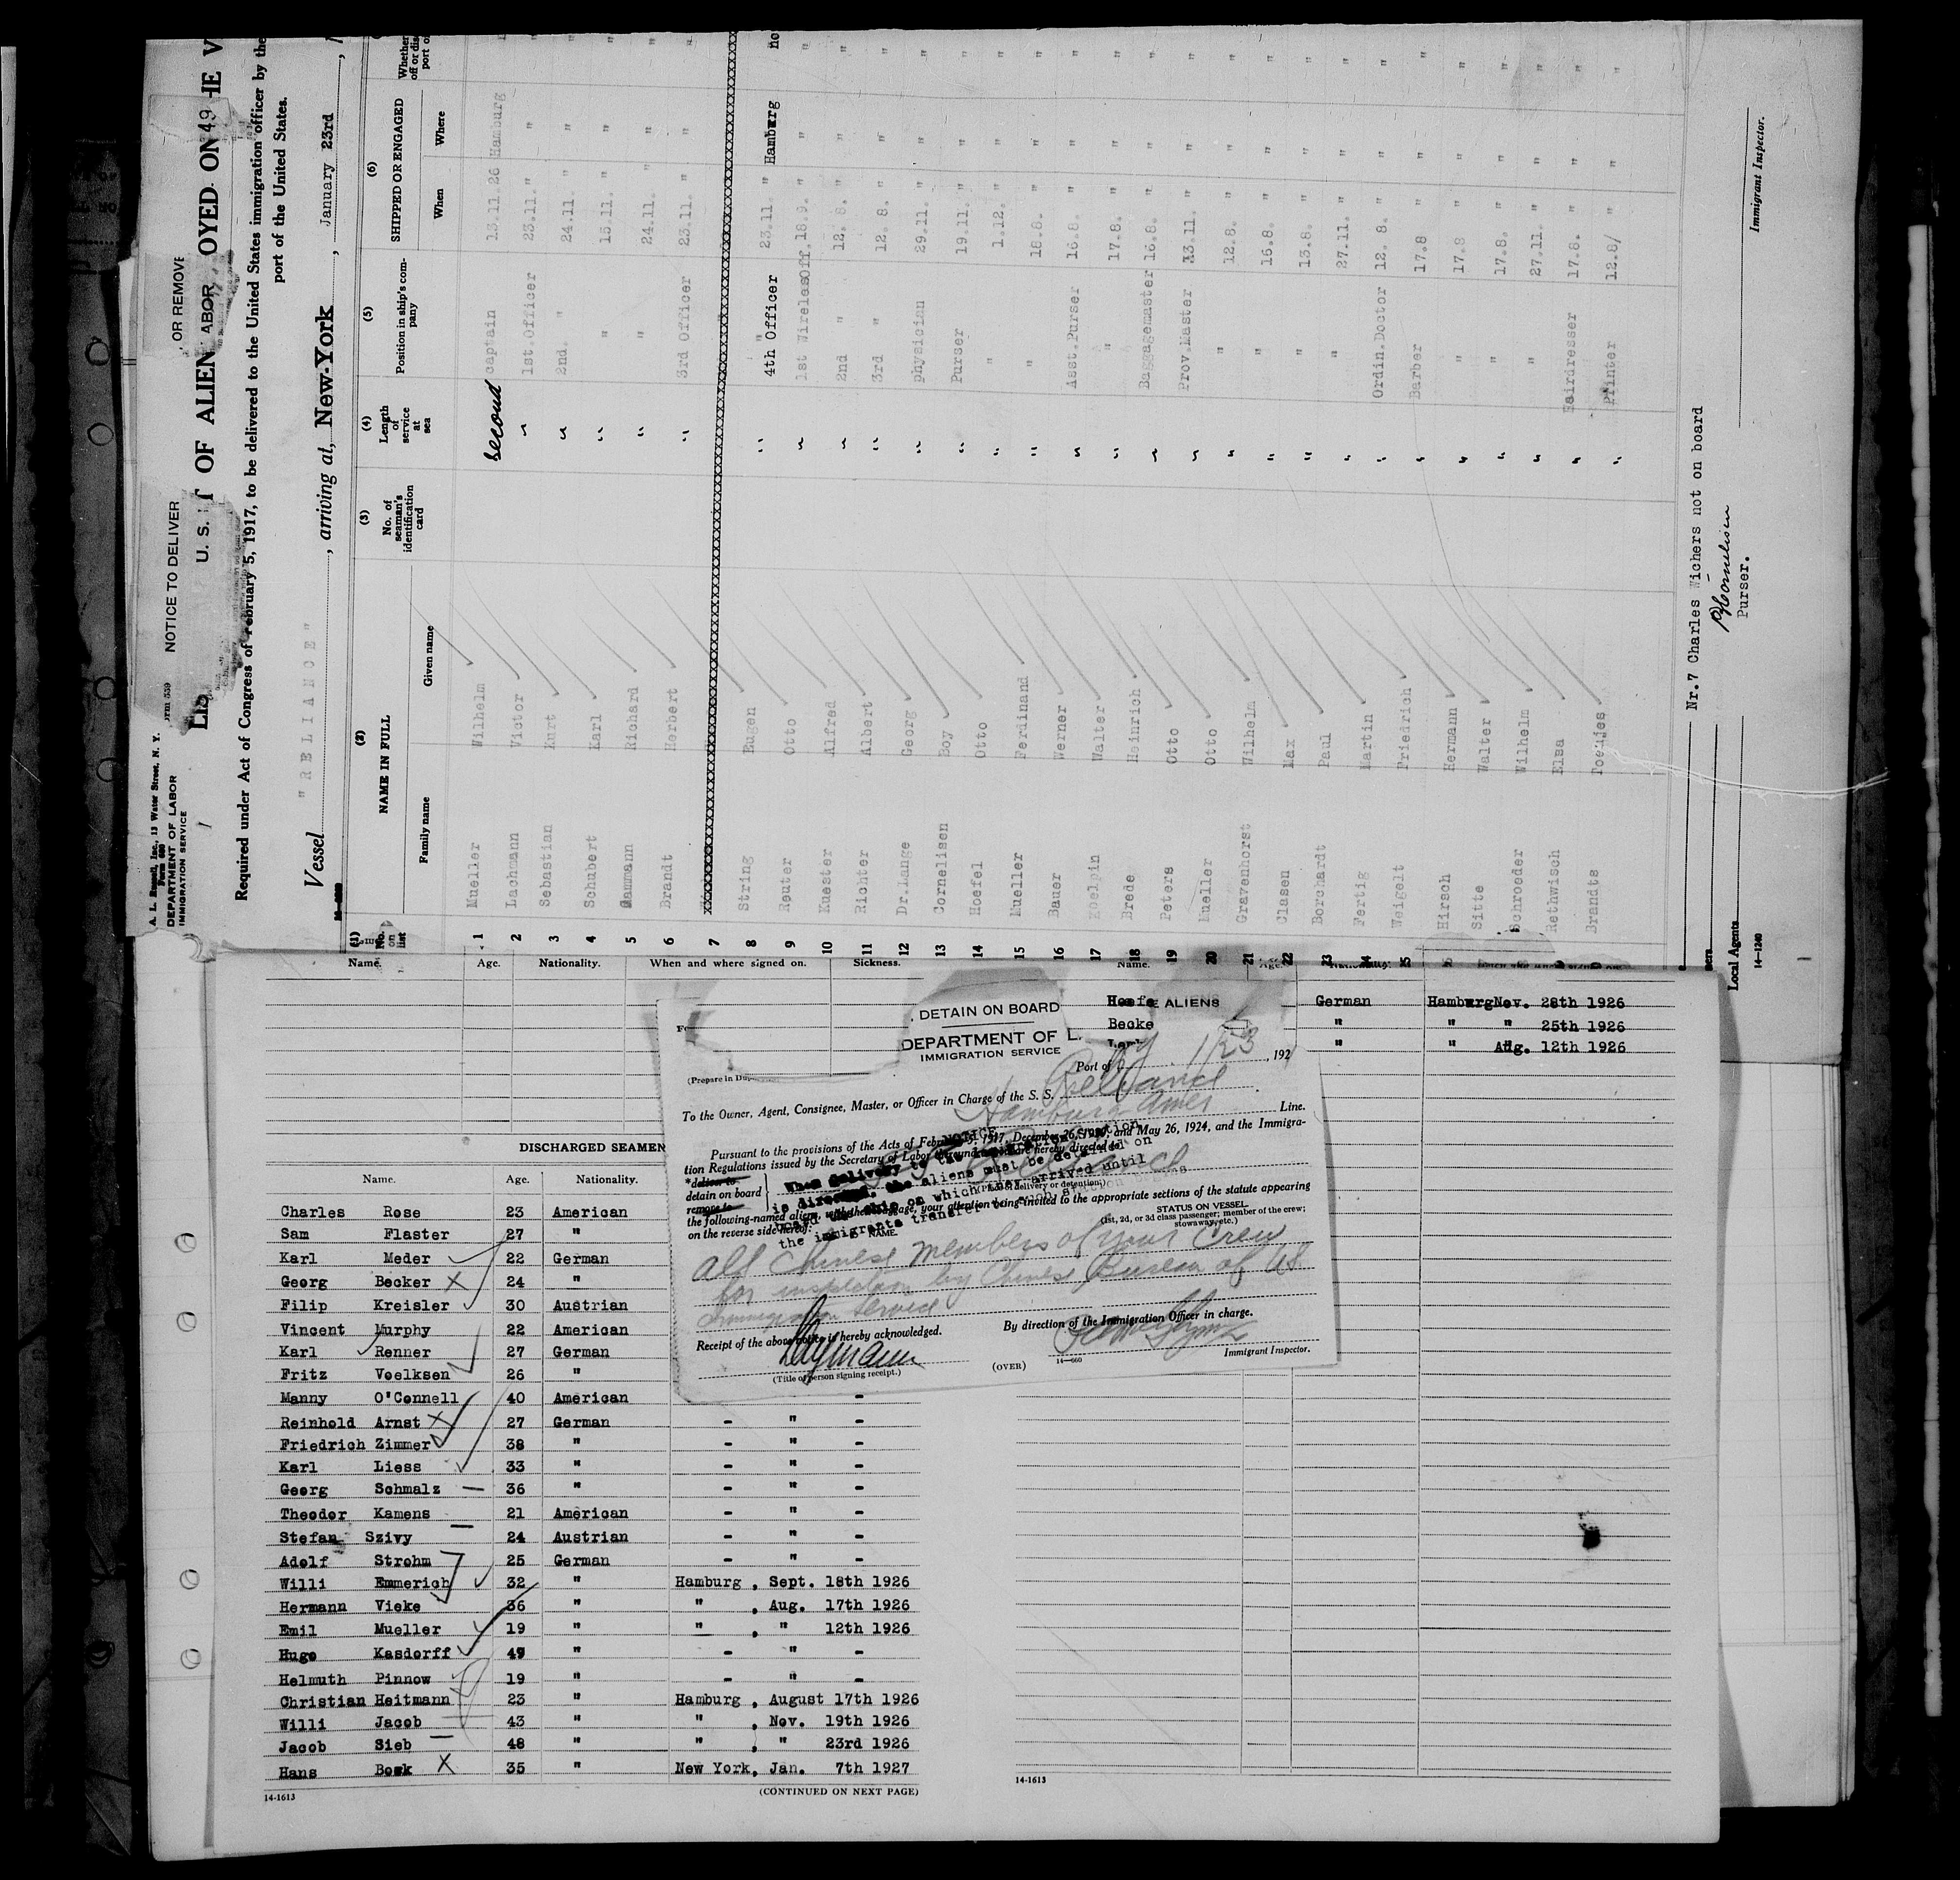 A. L. Russell, Inc., 13 Water Street, N. Y.
Form 680
DEPARTMENT OF LABOR
IMMIGRATION SERVICE
NOTICE TO DELIVER
OR REMOVE
U. S.
OF ALIEN
Required under Act of Congress of February 5, 1917, to be delivered to the United States immigration officer by the
port of the United States.
Vessel "RELIANCE", arriving at, New-York, January 23rd
(1) No. on list
(2) NAME IN FULL
Family name Given name
(3) No. of seaman's identification card
(4) Length of service at sea
(5) Position in ship's company
(6) SHIPPED OR ENGAGED
When Where
1 Mueller Wilhelm second Captain 13.11.26 Hamburg
2 Lachmann Victor " 1st.Officer 23.11. " "
3 Sebastian Kurt " 2nd. " 24.11. " "
4 Schubert Karl " " 15.11. " "
5 Dammann Richard " " 24.11. " "
6 Brandt Herbert " 3rd Officer 23.11. " "
7
8 String Eugen " 4th Officer 23.11 " Hamburg
9 Reuter Otto " 1st WirelessOff. 18.9. " "
10 Kuester Alfred " 2nd " 12. 8. " "
11 Richter Albert " 3rd " 12. 8. " "
12 Dr.Lange Georg " physician 29.11. " "
13 Cornelisen Boy " Purser 19.11. " "
14 Hoefel Otto " " 1.12. " "
15 Mueller Ferdinand " " 18.8. " "
16 Bauer Werner " Asst.Purser 16.8. " "
17 Koelpin Walter " " 17.8. " "
18 Brede Heinrich " Baggagemaster 16.8. " "
19 Peters Otto " Prov.Master 13.11. " "
20 Mueller Otto " " 12.8. " "
21 Gravenhorst Wilhelm " " 16.8. " "
22 Clasen Max " " 13.8. " "
23 Borchardt Paul " " 27.11. " "
24 Fertig Martin " Ordin.Doctor 12. 8. " "
25 Weigelt Friedrich " Barber 17.8 " "
Hirsch Hermann " " 17.8 " "
Sitte Walter " " 17.8. " "
Schroeder Wilhelm " " 27.11. " "
Rethwisch Elsa " Hairdresser 17.8. " "
Brandts Toenjes " Printer 12.8/ " "
Nr.7 Charles Wichers not on board
BCornelisen
Purser.
Immigrant Inspector.
Local Agents
14-1240
Name. Age. Nationality. When and where signed on. Sickness.
Name. Age. Nationality.
German Hamburg Nov. 28th 1926
Becke " " " 25th 1926
" " Aug. 12th 1926
DETAIN ON BOARD ALIENS
DEPARTMENT OF L
IMMIGRATION SERVICE
Port of NY 1/23, 192
To the Owner, Agent, Consignee, Master, or Officer in Charge of the S. S. Reliance
Hamburg Amer Line.
Pursuant to the provisions of the Acts of February 5, 1917, December 26, 1920, and May 26, 1924, and the Immigra-
tion Regulations issued by the Secretary of Labor thereunder, you are hereby directed to
*deliver to
detain on board
remove to
(Place of delivery or detention)
the following-named aliens, with their baggage, your attention being invited to the appropriate sections of the statute appearing
on the reverse side hereof:
NOTICE
When delivery to the Immigration Station
is directed, the aliens must be detained on
board the ship on which they arrived until
the immigrants transfer
NAME
STATUS ON VESSEL
(1st, 2d, or 3d class passenger; member of the crew;
stowaway, etc.)
All Chinese members of your crew
for inspection by Chinese Bureau of US
Immigration Service
Receipt of the above notice is hereby acknowledged.
By direction of the Immigration Officer in charge.
(Title of person signing receipt.)
(OVER)
14—660
Immigrant Inspector.
DISCHARGED SEAMEN
Name. Age. Nationality.
Charles Rose 23 American
Sam Flaster 27 "
Karl Meder 22 German
Georg Becker X 24 "
Filip Kreisler 30 Austrian
Vincent Murphy 22 American
Karl Renner 27 German
Fritz Voelksen 26 "
Manny O'Connell 40 American -
Reinhold Arnst X 27 German - " -
Friedrich Zimmer 38 " - " -
Karl Liess 33 " - " -
Georg Schmalz 36 " - " -
Theodor Kamens 21 American - " -
Stefan Szivy 24 Austrian - " -
Adolf Strohm 25 German - " -
Willi Emmerich 32 " Hamburg , Sept. 18th 1926
Hermann Vieke 36 " " , Aug. 17th 1926
Emil Mueller 19 " " , " 12th 1926
Hugo Kasdorff 49 " - " -
Helmuth Pinnow 19 " - " -
Christian Heitmann 23 " Hamburg , August 17th 1926
Willi Jacob 43 " " , Nov. 19th 1926
Jacob Sieb 48 " " , " 23rd 1926
Hans Bock X 35 " New York, Jan. 7th 1927
14-1613
(CONTINUED ON NEXT PAGE)
14-1613